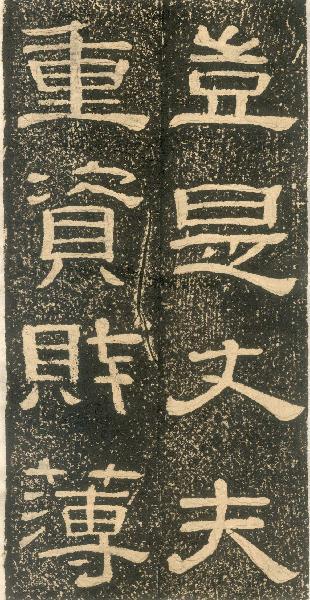 豈是丈夫
重資財薄